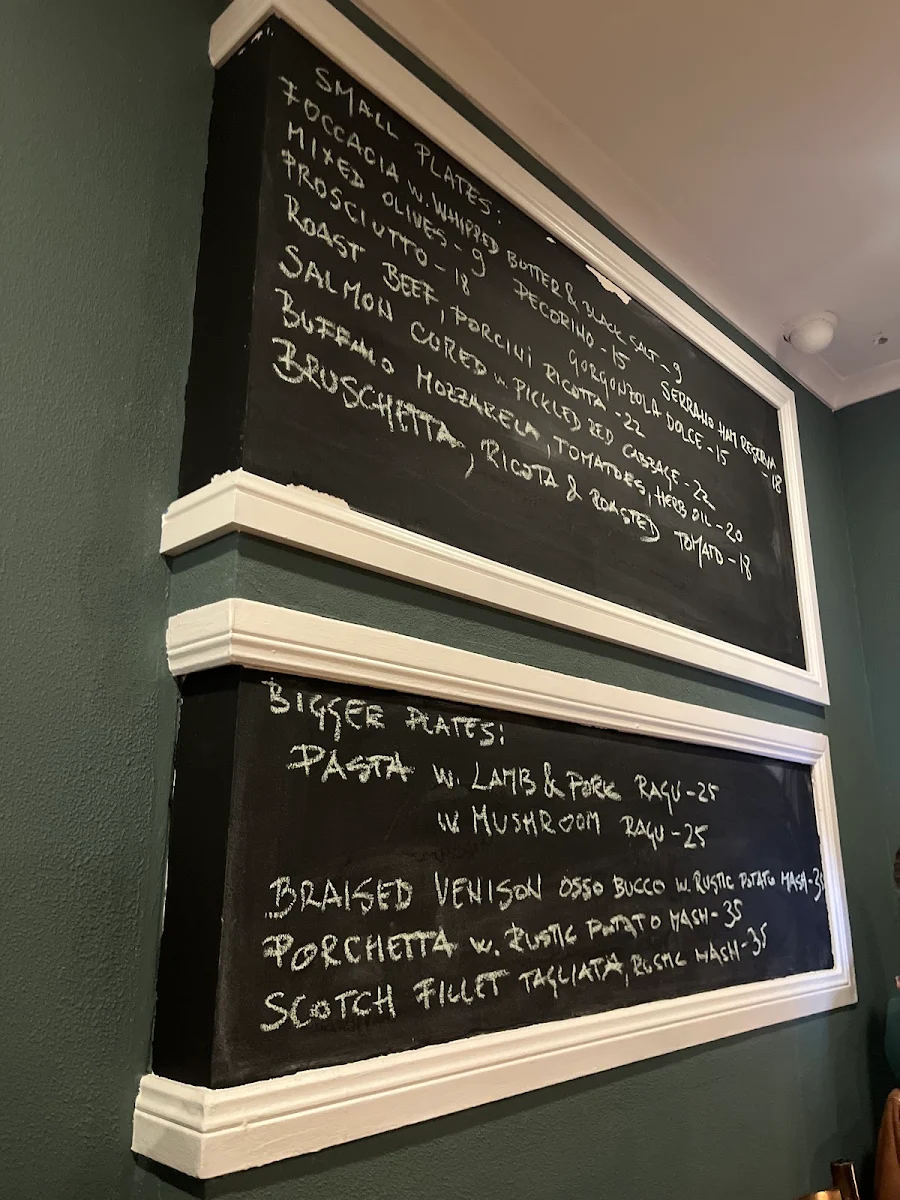 SMALL PLATES:
FOCCACIA w. WHIPPED BUTTER & BLACK SALT - 9
MIXED OLIVES - 9 PECORINO - 15 SERRANO HAM RESERVA - 18
PROSCIUTTO - 18 GORGONZOLA DOLCE - 15
ROAST BEEF, PORCINI RICOTTA - 22
SALMON CORED w. PICKLED RED CABBAGE - 22
BUFFALO MOZZARELA, TOMATOES, HERB OIL - 20
BRUSCHETTA, RICOTA & ROASTED TOMATO - 18
BIGGER PLATES:
PASTA w. LAMB & PORK RAGU - 25
w MUSHROOM RAGU - 25
BRAISED VENISON OSSO BUCCO w. RUSTIC POTATO MASH - 35
PORCHETTA w. RUSTIC POTATO MASH - 35
SCOTCH FILLET TAGLIATA, RUSTIC MASH - 35